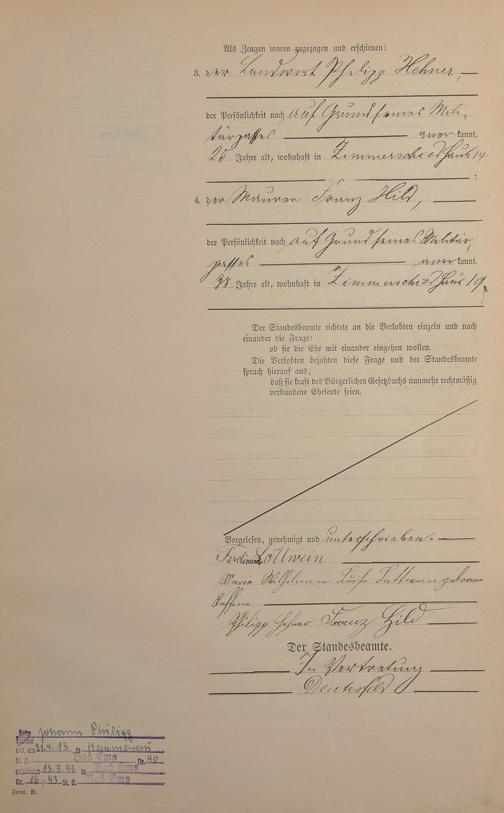 Als Zeugen waren zugezogen und erschienen:
3. der Landwirt Philipp Hehner,
der Persönlichkeit nach auf Grund seines Mili-
tärpasses anerkannt,
25 Jahre alt, wohnhaft in Zimmerschied Haus 14
;
4. der Maurer Franz Hild,
der Persönlichkeit nach auf Grund seines Militär-
passes anerkannt,
38 Jahre alt, wohnhaft in Zimmerschied Haus 19.
Der Standesbeamte richtete an die Verlobten einzeln und nach
einander die Frage:
ob sie die Ehe mit einander eingehen wollen.
Die Verlobten bejahten diese Frage und der Standesbeamte
sprach hierauf aus,
daß sie kraft des Bürgerlichen Gesetzbuchs nunmehr rechtmäßig
verbundene Eheleute seien.
Vorgelesen, genehmigt und unterschrieben.
Ferdinand Lottwein
Maria Wilhelmine Luise geborene
Philipp Hehner Franz Hild
Der Standesbeamte.
In Vertretung
Sohn Johann Philipp
geb. am 21.4.13 in
St. A. Bad Ems Nr. 40
geheiratet 13.3.43 in Bad Ems
Nr. 16/43 St. A. Bad Ems
Form. B.